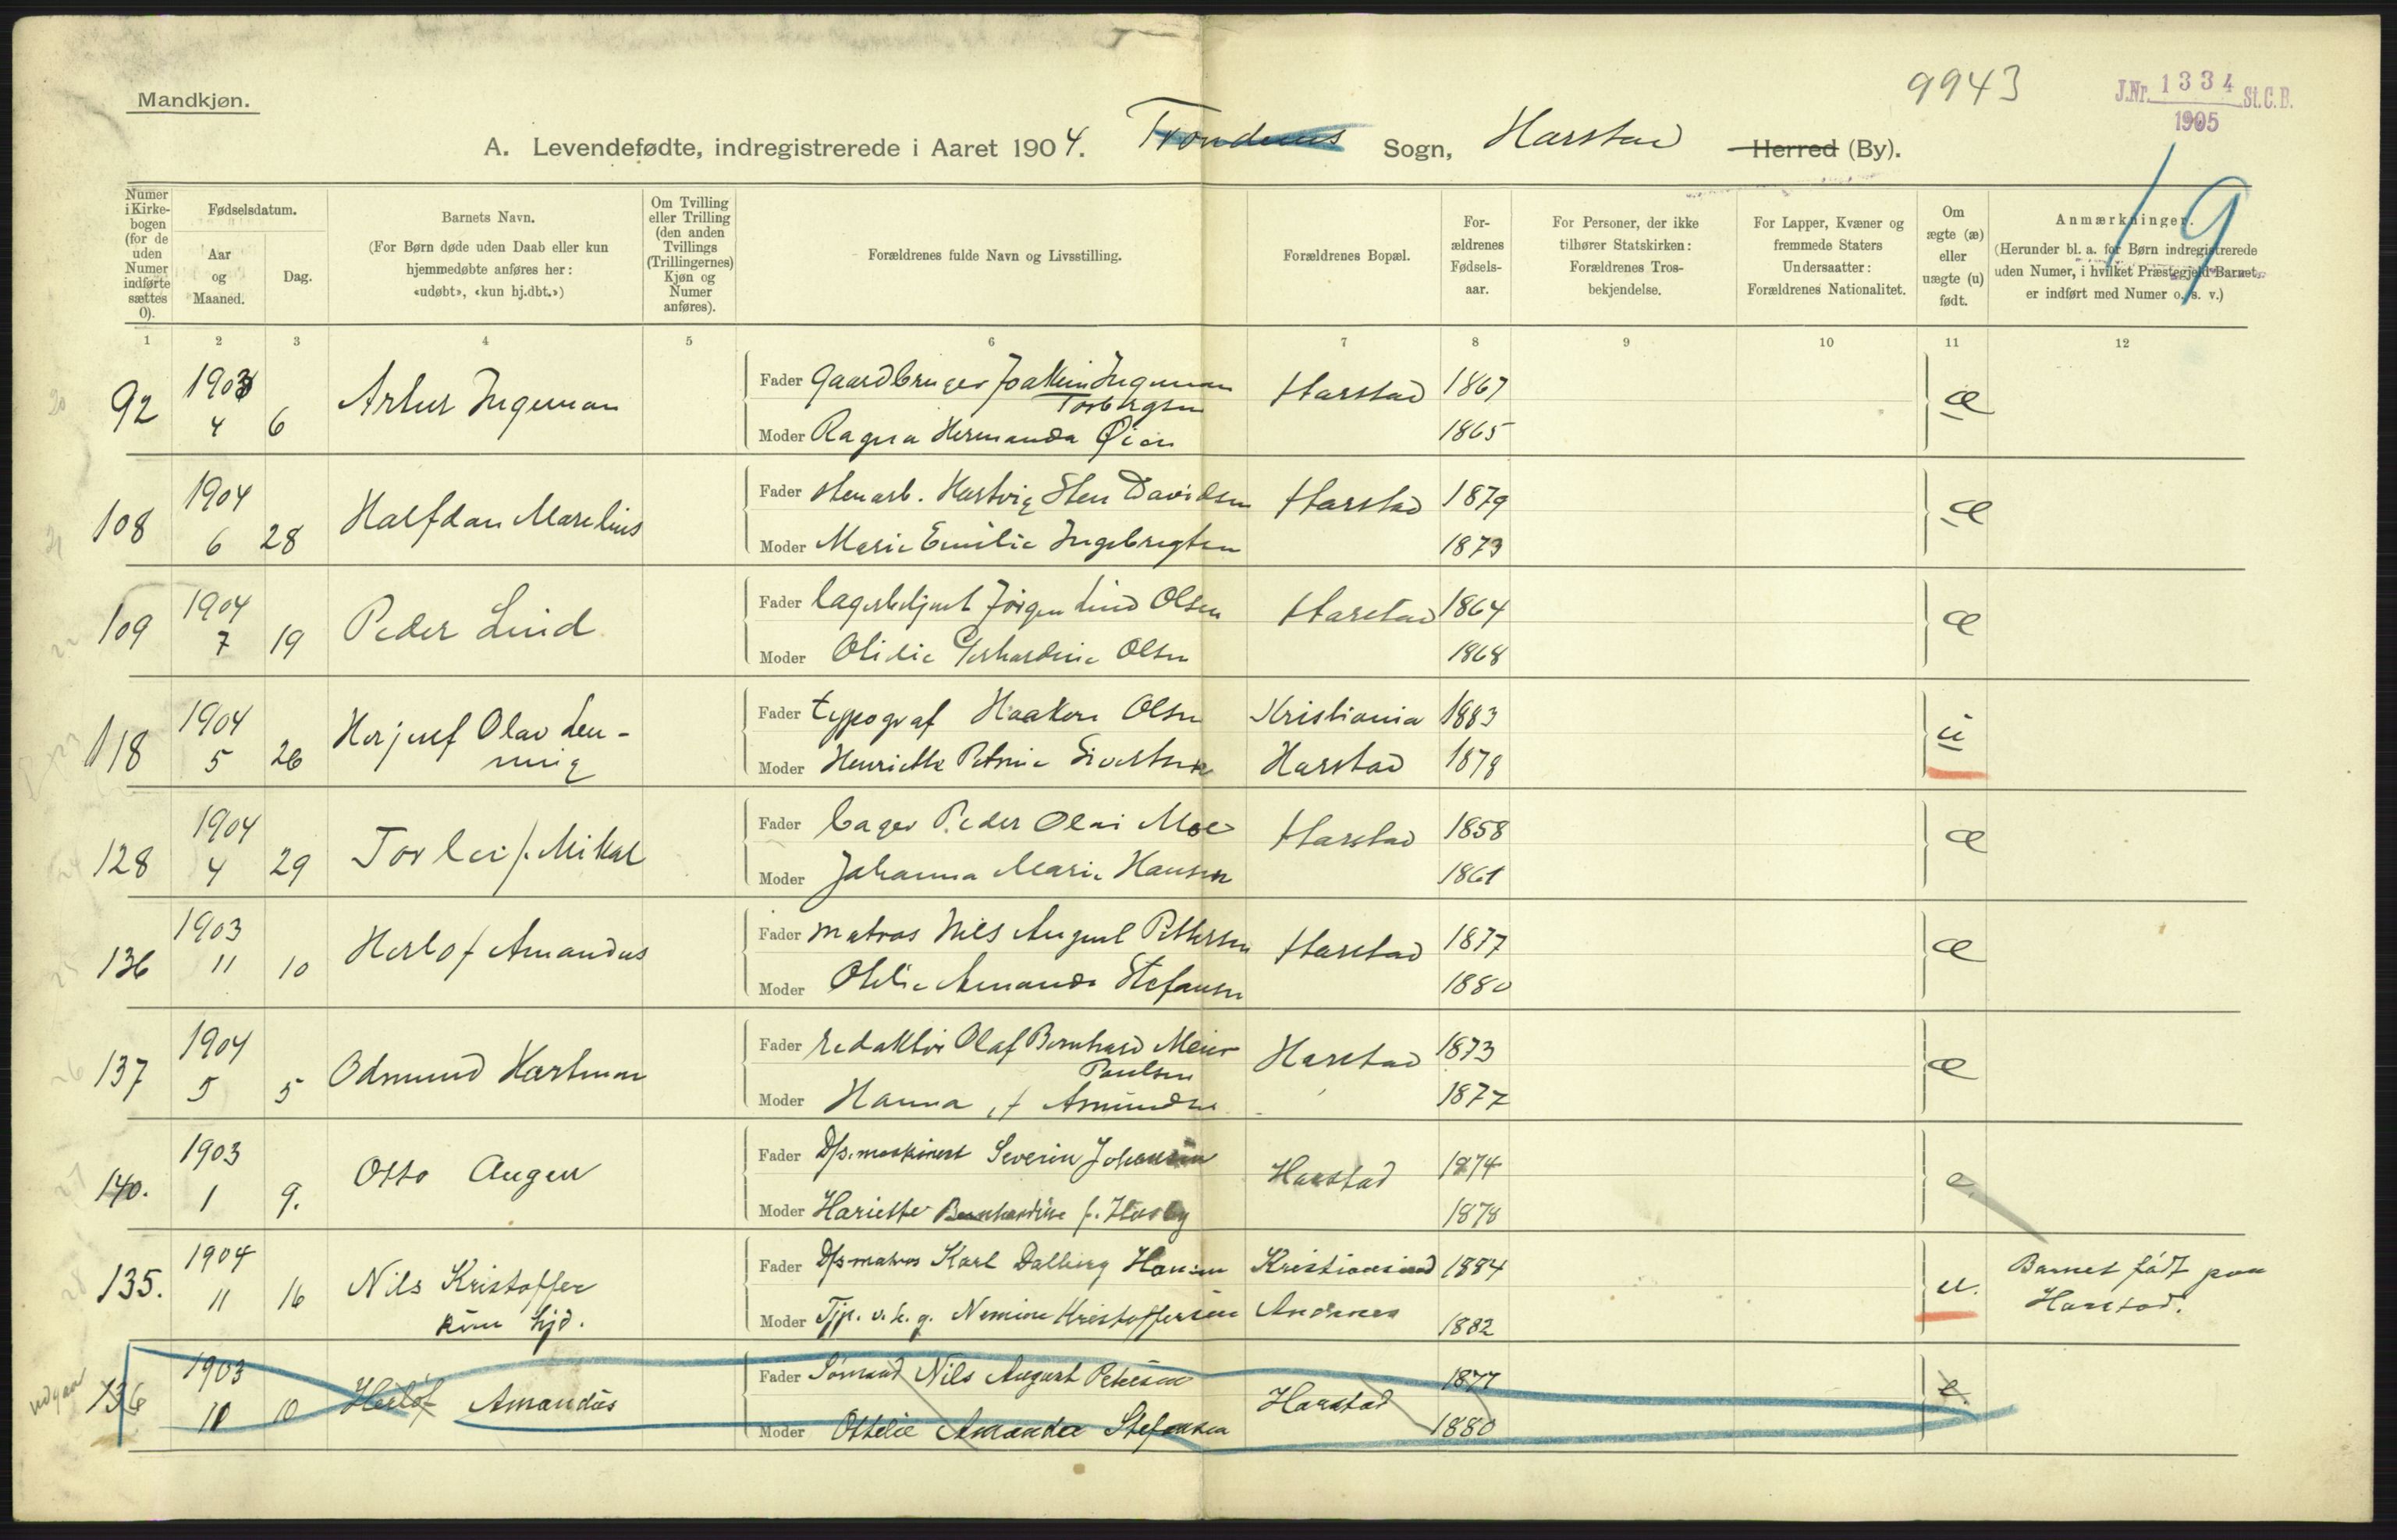 Mandkjøn.
9943
J.Nr. 1334 St.C.B.
1905
A. Levendefødte, indregistrerede i Aaret 1904. Trondenes Sogn, Harstad Herred (By).
19
Numer i Kirkebogen (for de uden Numer indførte sættes 0).
Fødselsdatum.
Aar og Maaned.
Dag.
Barnets Navn.
(For Børn døde uden Daab eller kun hjemmedøbte anføres her: «udøbt», «kun hj.dbt.»)
Om Tvilling eller Trilling (den anden Tvillings (Trillingernes) Kjøn og Numer anføres).
Forældrenes fulde Navn og Livsstilling.
Forældrenes Bopæl.
Forældrenes Fødselsaar.
For Personer, der ikke tilhører Statskirken: Forældrenes Trosbekjendelse.
For Lapper, Kvæner og fremmede Staters Undersaatter: Forældrenes Nationalitet.
Om ægte (æ) eller uægte (u) født.
Anmærkninger.
(Herunder bl. a. for Børn indregistrerede uden Numer, i hvilket Præstegjeld Barnet er indført med Numer o. s. v.)
1 2 3 4 5 6 7 8 9 10 11 12
92 1903 4 6 Artur Ingeman
Fader Gaardbruger Joakim Ingeman Torbergsen Harstad 1867 æ
Moder Ragna Hermanda Øien 1865
108 1904 6 28 Halfdan Marelius
Fader stenarb. Hartvig Sten Davidsen Harstad 1879 æ
Moder Marie Emilie Ingebrigtsen 1873
109 1904 7 19 Peder Lind
Fader lagerbetjent Jørgen Lind Olsen Harstad 1864 æ
Moder Olivie Gerhardine Olsen 1868
118 1904 5 26 Herjulf Olav Henning
Fader typograf Haakon Olsen Kristiania 1883 u
Moder Henriette Petrine Sivertsen Harstad 1878
128 1904 4 29 Torleif Mikal
Fader bager Peder Olai Moe Harstad 1858 æ
Moder Johanna Marie Hansen 1861
136 1903 11 10 Herlof Amandus
Fader matros Nils August Pettersen Harstad 1877 æ
Moder Otilie Amanda Stefansen 1880
137 1904 5 5 Odmund Hartman
Fader redaktør Olaf Bernhard Meier Paulsen Harstad 1873 æ
Moder Hanna f. Amundsen 1877
140. 1903 1 9. Otto Augen
Fader D/s. maskinist Severin Johansen Harstad 1874 e.
Moder Hariette Bernhardine f. 1878
135. 1904 11 16 Nils Kristoffer
kun hjd.
Fader D/s matros Karl Dalberg Hansen Kristiansund 1884 u. Barnet født paa Harstad.
Moder Tjp. Nemine Kristoffersen Andenes 1882
udgaar 136 1903 11 10 Herlof Amandus
Fader Sømand Nils August Petersen Harstad 1877 e.
Moder Ottelie Amanda Stefansen 1880